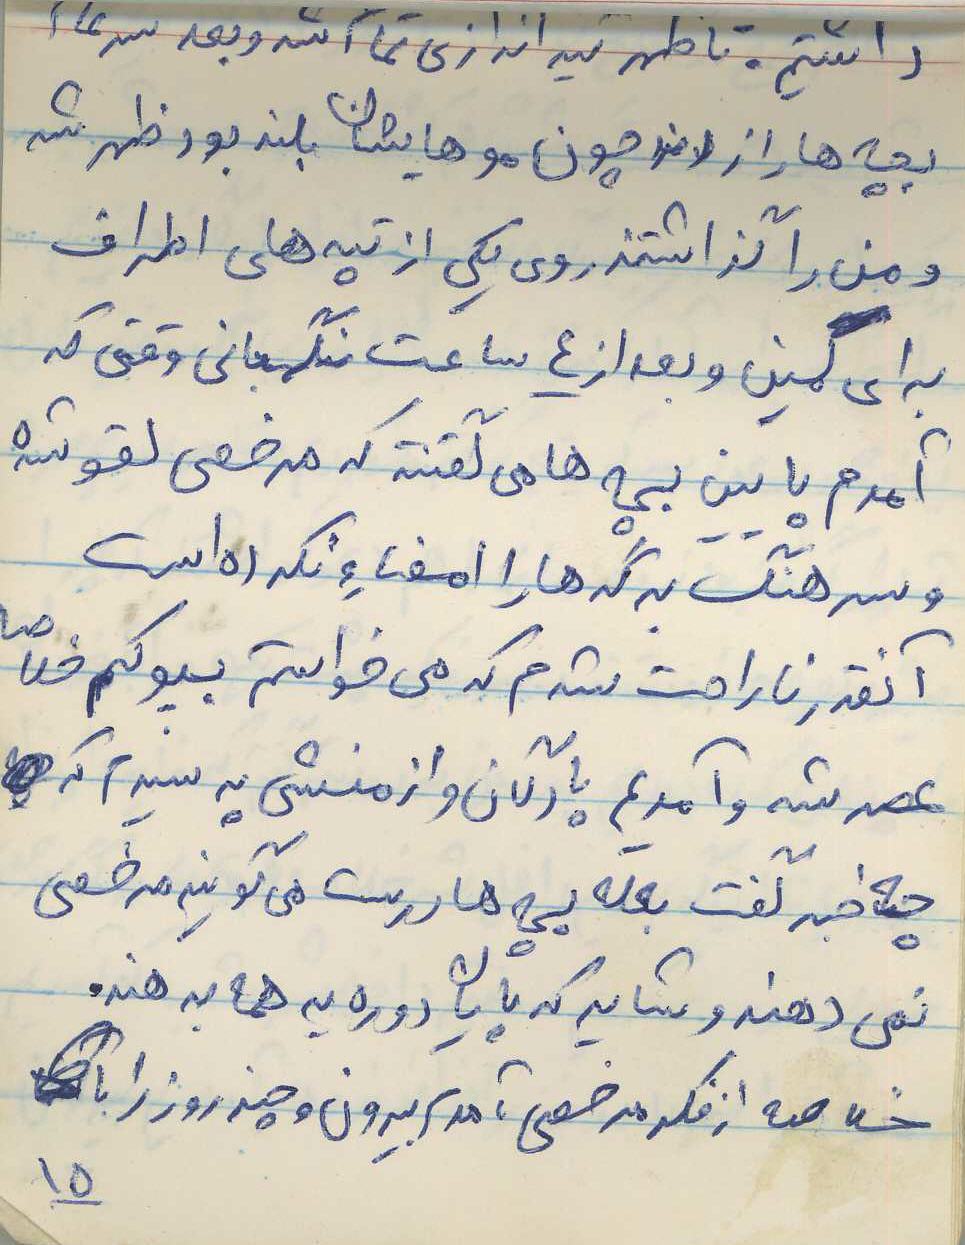 داشتیم. تا ظهر تیر اندازی تمام شد و بعد سر
بچه ها را از چون موهایشان بلند بود ظهر شد
و من را گذاشتند روی یکی از تپه های اطراف
برای کمین و بعد از ۴ ساعت نگهبانی وقتی که
آمدم پایین بچه ها می گفتند که مرخصی لغو شده
و سرهنگ برگه ها را امضاء نکرده است
آنقدر ناراحت شدم که می خواستم بیوکم خلاصه
عصر شد و آمدیم پادگان و از منشی پرسیدم که
چه خبر گفت بله بچه ها درست می گویند مرخصی
نمی دهند و شاید که پایان دوره به همه بدهند.
خلاصه از فکر مرخصی آمدم بیرون و چند روز را با
۱۵